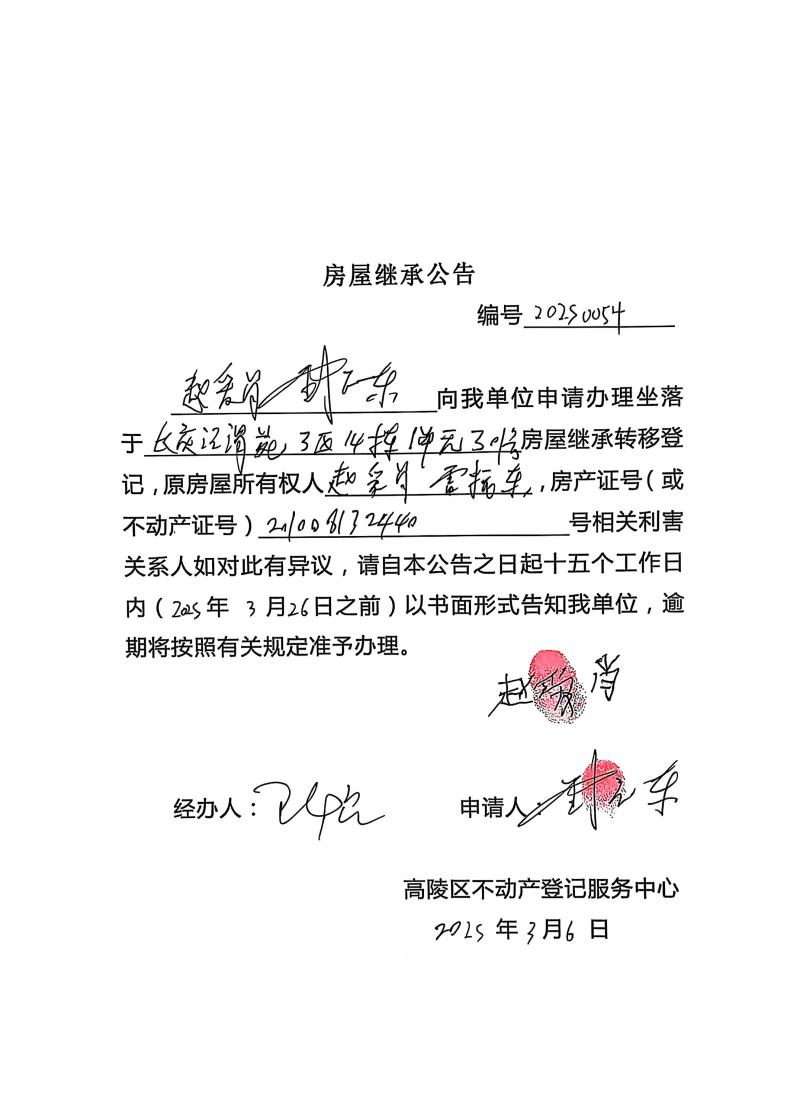 房屋继承公告
编号 20250054
赵爱肖 东 向我单位申请办理坐落
于长庆泾渭苑3区14栋1单元3 房屋继承转移登
记，原房屋所有权人赵爱肖 雷振东，房产证号（或
不动产证号） 21008132440 号相关利害
关系人如对此有异议，请自本公告之日起十五个工作日
内（2025年 3 月26日之前）以书面形式告知我单位，逾
期将按照有关规定准予办理。
赵爱肖
经办人： 申请人： 东
高陵区不动产登记服务中心
2025 年 3 月 6 日